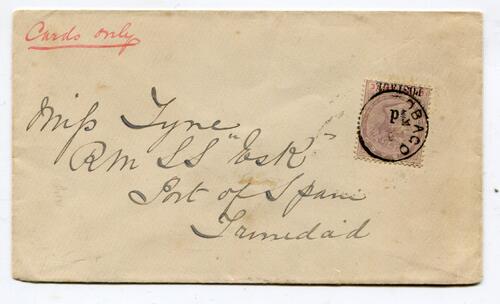 Cards only
Miss Tyne
RM SS "Esk"
Port of Spain
Trinidad
TOBAGO